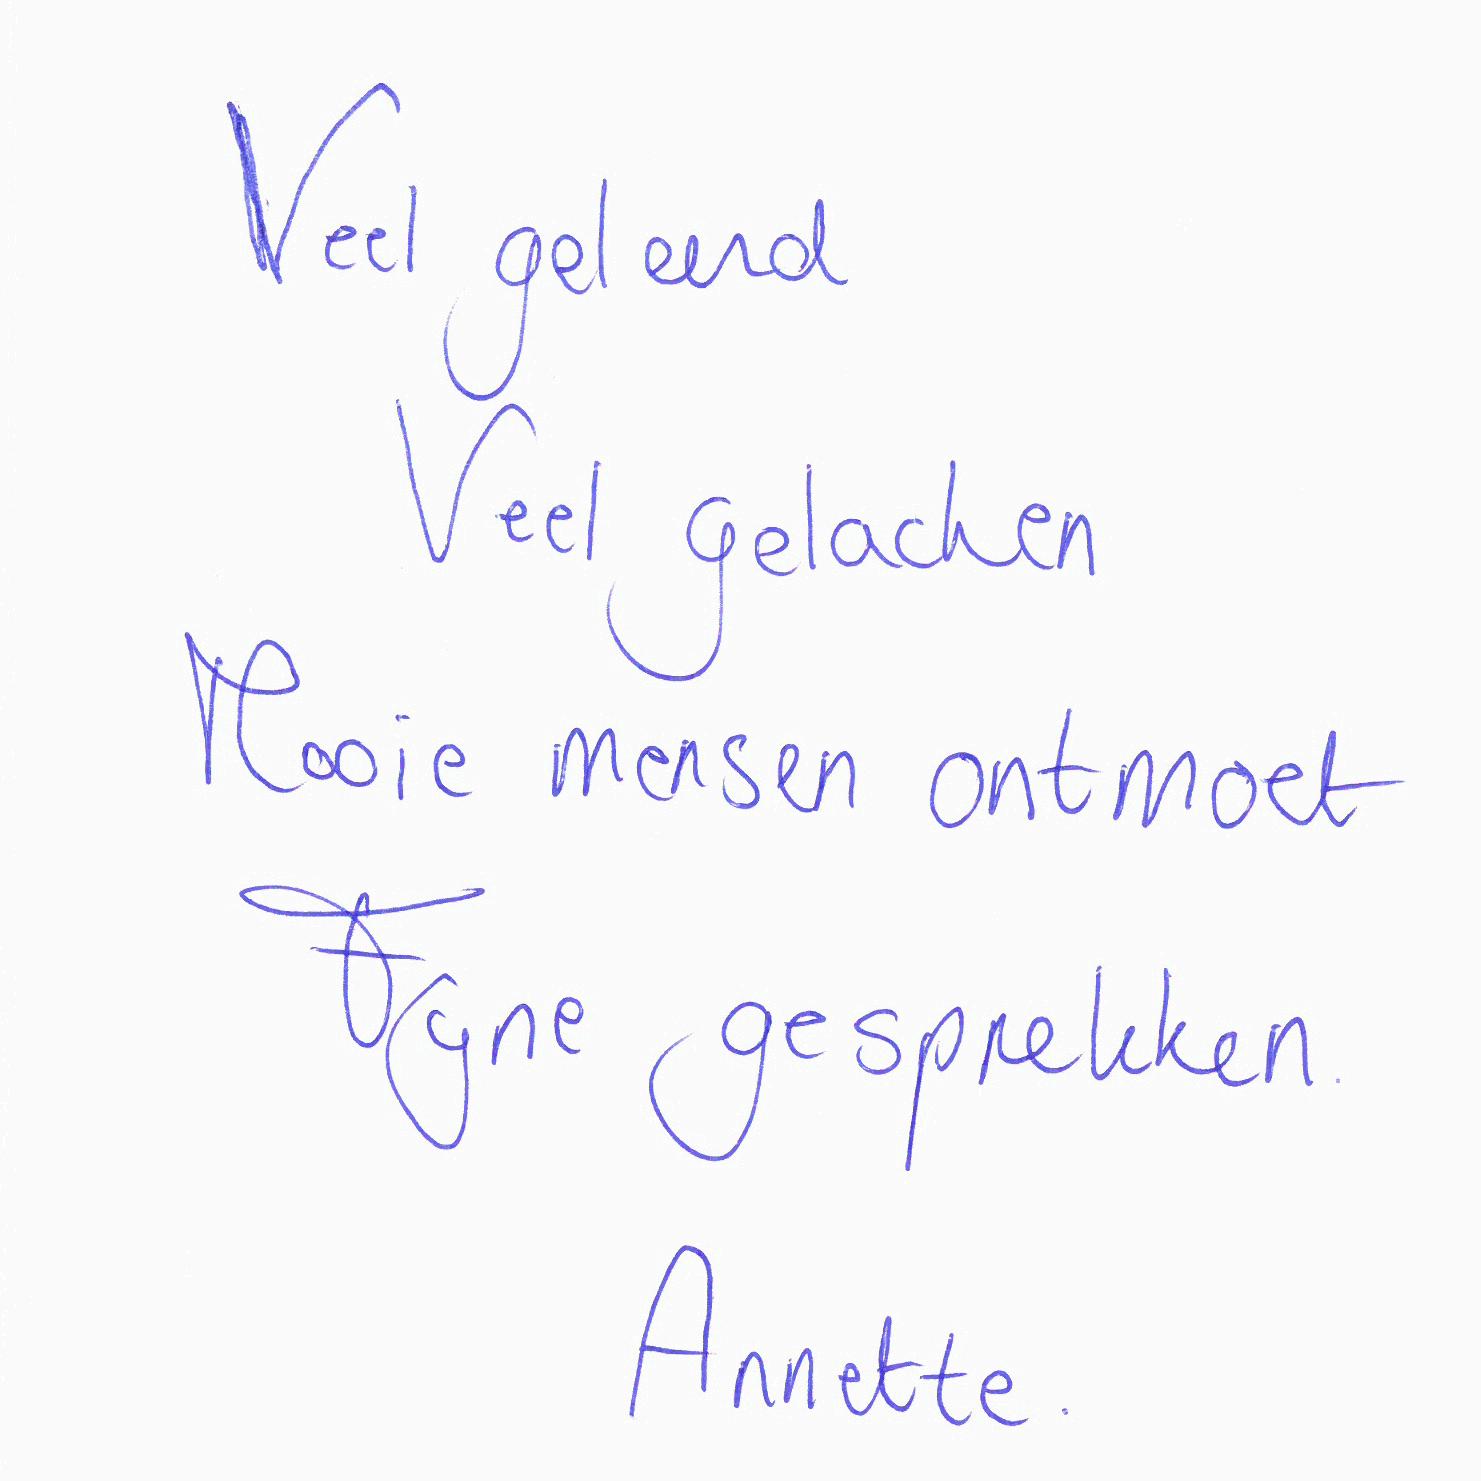 Veel geleerd
Veel gelachen
Mooie mensen ontmoet
Fyne gesprekken.
Annette.